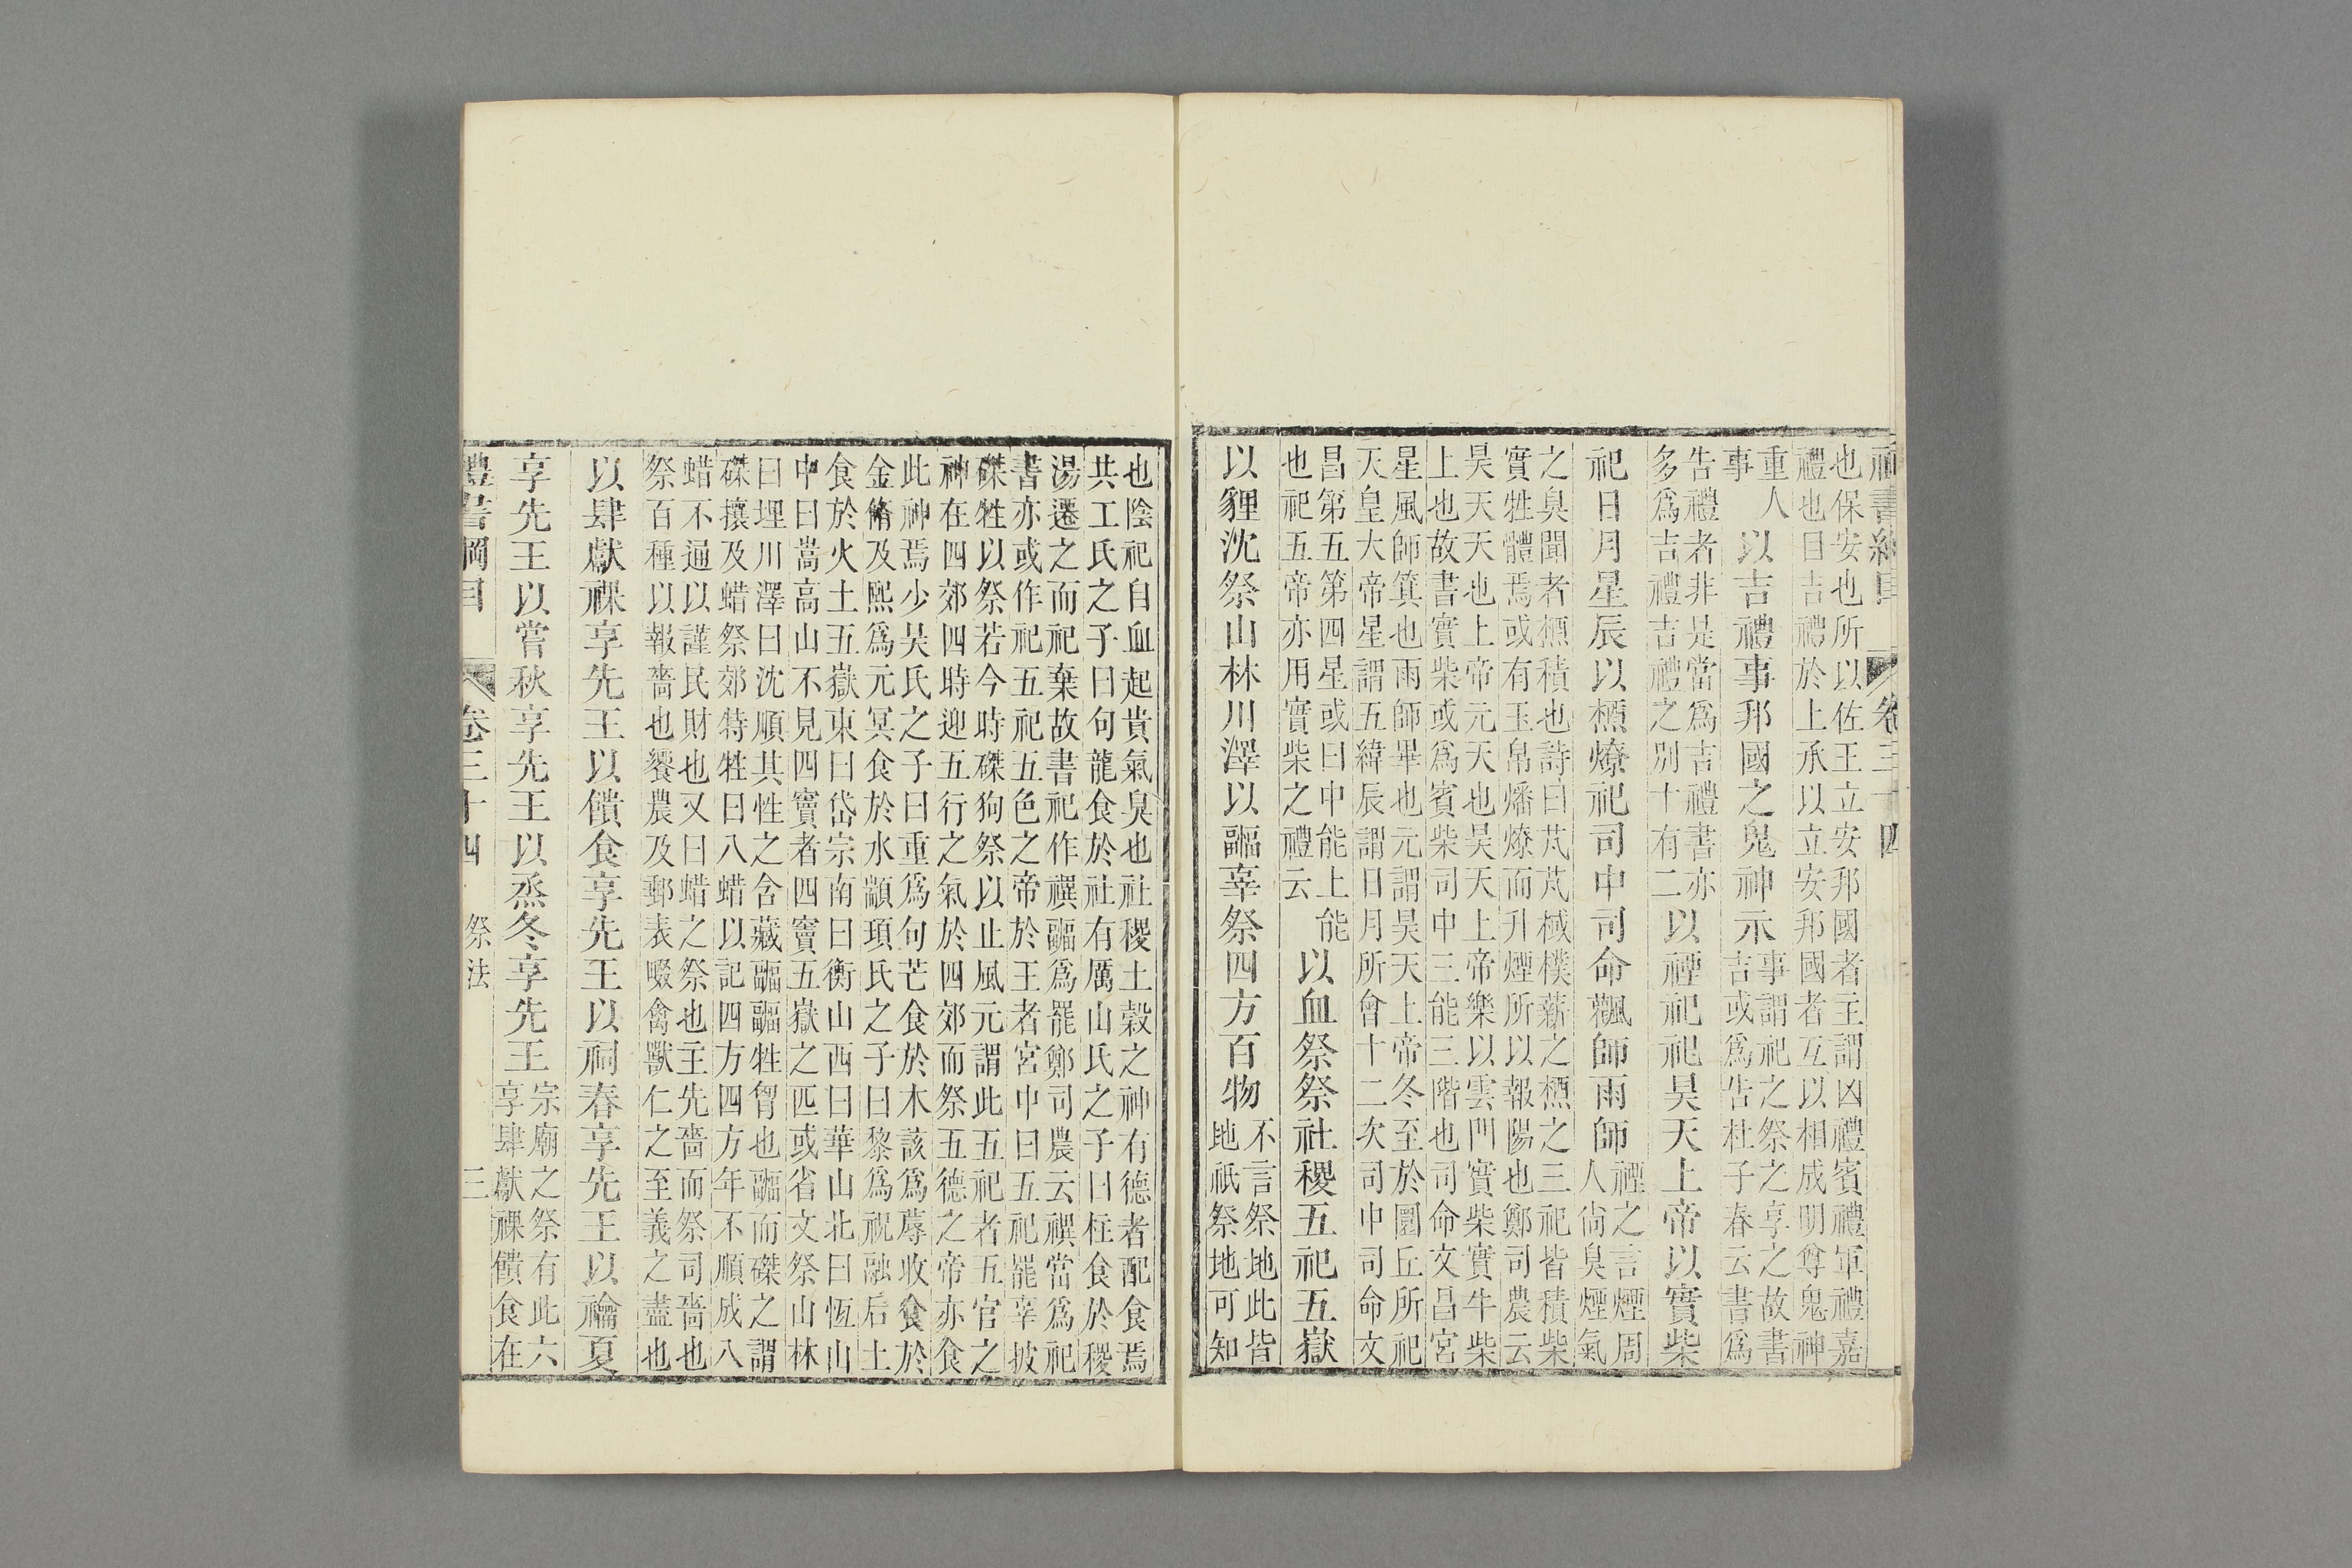 禮書綱目 卷三十四
也保安也所以佐王立安邦國者主謂凶禮賓禮軍禮嘉
禮也目吉禮於上承以立安邦國者互以相成明尊鬼神
重人
事
以吉禮事邦國之鬼神示
事謂祀之祭之享之故書
吉或爲告杜子春云書爲
告禮者非是當爲吉禮書亦
多爲吉禮吉禮之別十有二
以禋祀祀昊天上帝以實柴
祀日月星辰以槱燎祀司中司命飌師雨師
禋之言煙周
人尚臭煙氣
之臭聞者槱積也詩曰芃芃棫樸薪之槱之三祀皆積柴
實牲體焉或有玉帛燔燎而升煙所以報陽也鄭司農云
昊天天也上帝元天也昊天上帝樂以雲門實柴實牛柴
上也故書實柴或爲賓柴司中三能三階也司命文昌宮
星風師箕也雨師畢也元謂昊天上帝冬至於圜丘所祀
天皇大帝星謂五緯辰謂日月所會十二次司中司命文
昌第五第四星或曰中能上能
也祀五帝亦用實柴之禮云
以血祭祭社稷五祀五嶽
以貍沈祭山林川澤以疈辜祭四方百物
不言祭地此皆
地祇祭地可知
也陰祀自血起貴氣臭也社稷土穀之神有德者配食焉
共工氏之子曰句龍食於社有厲山氏之子曰柱食於稷
湯遷之而祀棄故書祀作禩疈爲罷鄭司農云禩當爲祀
書亦或作祀五祀五色之帝於王者宮中曰五祀罷辜披
磔牲以祭若今時磔狗祭以止風元謂此五祀者五官之
神在四郊四時迎五行之氣於四郊而祭五德之帝亦食
此神焉少昊氏之子曰重爲句芒食於木該爲蓐收食於
金脩及熙爲元冥食於水顓頊氏之子曰黎爲祝融后土
食於火土五嶽東曰岱宗南曰衡山西曰華山北曰恆山
中曰嵩高山不見四竇者四竇五嶽之匹或省文祭山林
曰埋川澤曰沈順其性之含藏疈疈牲胷也疈而磔之謂
磔攘及蜡祭郊特牲曰八蜡以記四方四方年不順成八
蜡不通以謹民財也又曰蜡之祭也主先嗇而祭司嗇也
祭百種以報嗇也饗農及郵表畷禽獸仁之至義之盡也
以肆獻祼享先王以饋食享先王以祠春享先王以禴夏
享先王以嘗秋享先王以烝冬享先王
宗廟之祭有此六
享肆獻祼饋食在
禮書綱目 卷三十四 祭法 三